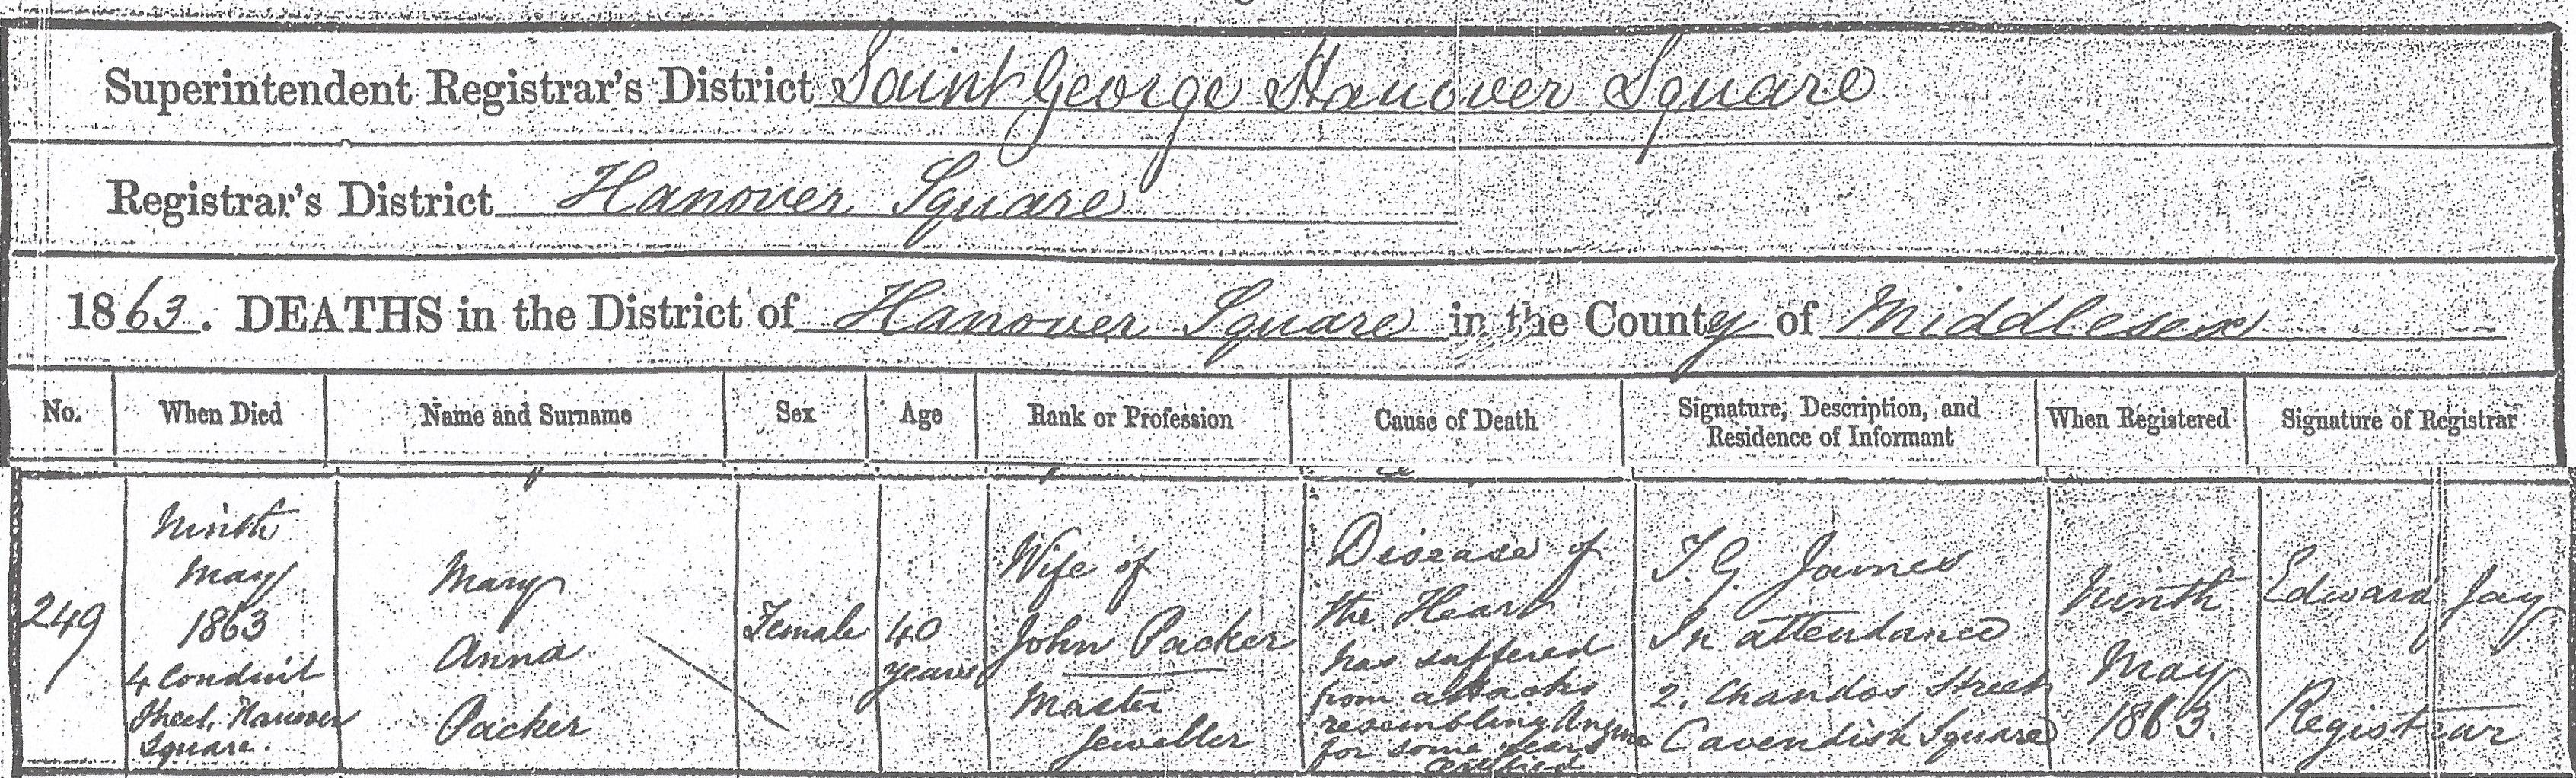 Superintendent Registrar's District Saint George Hanover Square
Registrar's District Hanover Square
1863. DEATHS in the District of Hanover Square in the County of Middlesex
No.
When Died
Name and Surname
Sex
Age
Rank or Profession
Cause of Death
Signature, Description, and
Residence of Informant
When Registered
Signature of Registrar
249
Ninth
May
1863
4 Conduit
Street, Hanover
Square.
Mary
Anna
Packer
Female
40
years
Wife of
John Packer
Master
Jeweller
Disease of
the Heart
has suffered
from attacks
resembling Angina
for some years
certified
T. G. James
In attendance
2. Chandos Street
Cavendish Square
Ninth
May
1863.
Edward Jay
Registrar